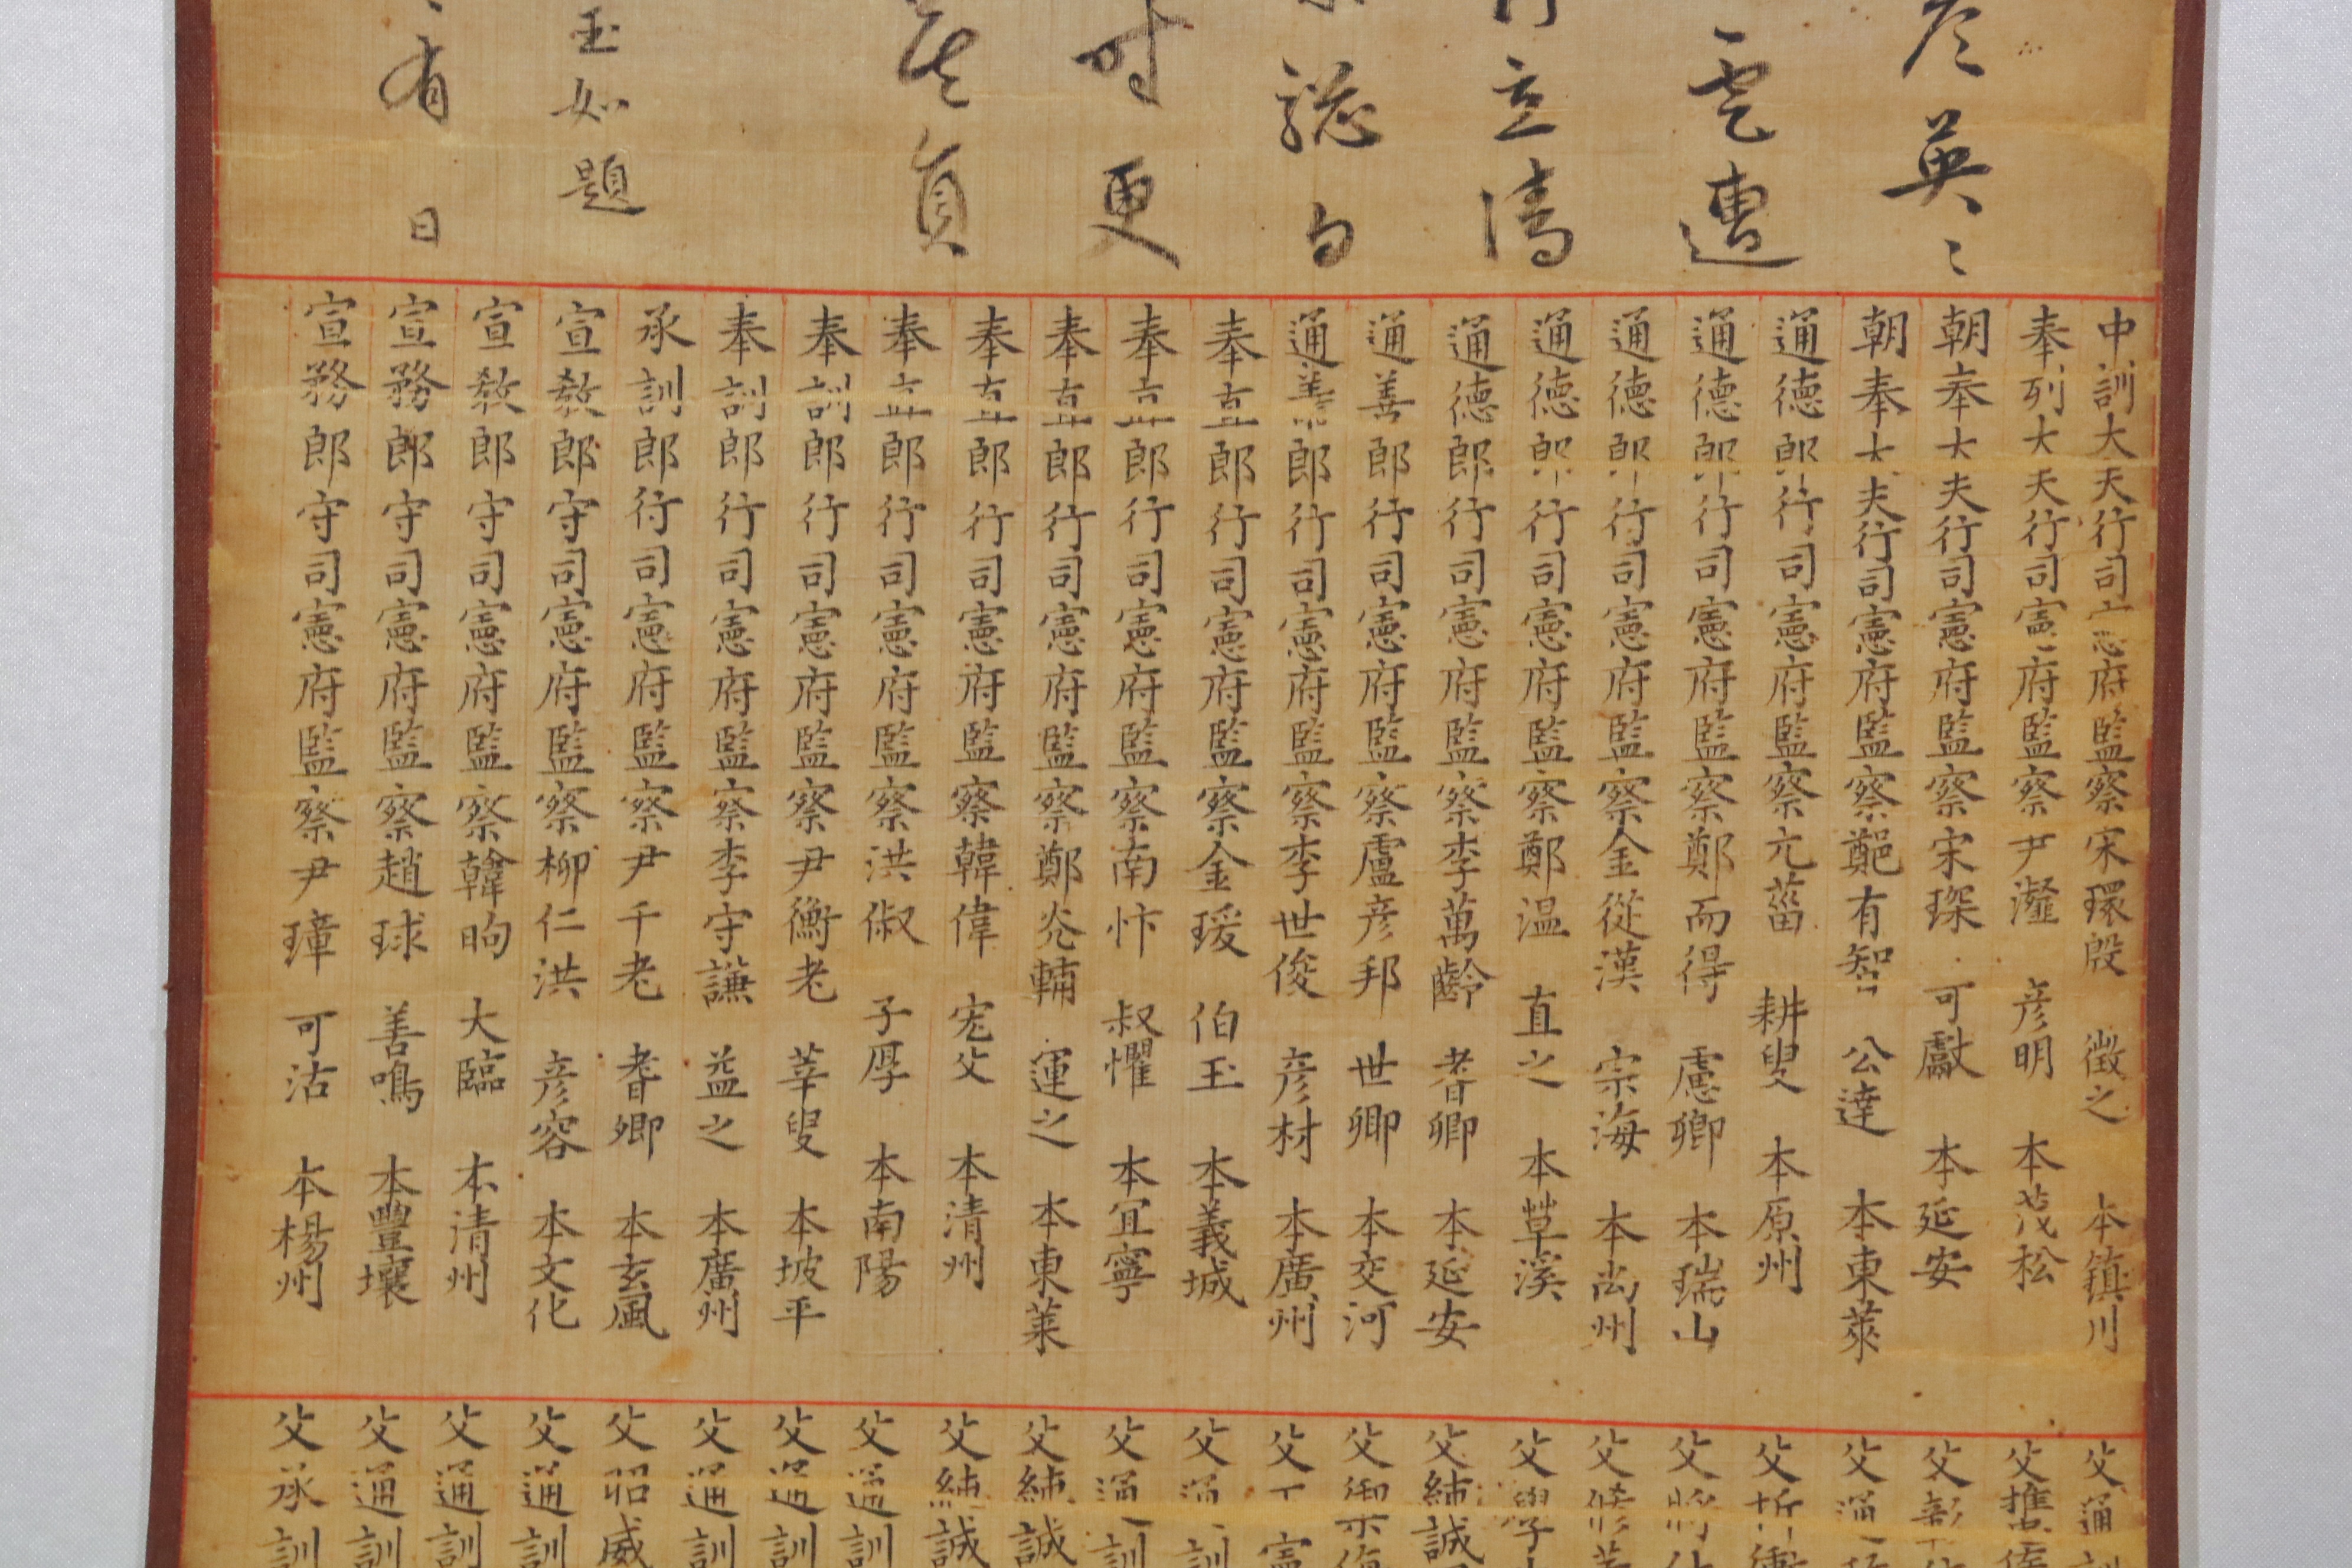 英〻
雹遭
立濤
聡白
时更
負
玉如題
有日
中訓大夫行司憲府監察宋環殷 徵之 本鎮川
奉列大夫行司憲府監察尹瀣 彦明 本茂松
朝奉大夫行司憲府監察宋琛 可獻 本延安
朝奉大夫行司憲府監察鄭有智 公達 本東萊
通德郎行司憲府監察元菑 耕叟 本原州
通德郎行司憲府監察鄭而得 慮卿 本瑞山
通德郎行司憲府監察金從漢 宗海 本尚州
通德郎行司憲府監察鄭温 直之 本草溪
通德郎行司憲府監察李萬齡 耆卿 本延安
通善郎行司憲府監察盧彦邦 世卿 本交河
通善郎行司憲府監察李世俊 彦材 本廣州
奉直郎行司憲府監察金瑗 伯玉 本義城
奉直郎行司憲府監察南忭 叔懼 本宜寧
奉直郎行司憲府監察鄭光輔 運之 本東萊
奉直郎行司憲府監察韓偉 宏父 本清州
奉直郎行司憲府監察洪俶 子厚 本南陽
奉訓郎行司憲府監察尹衡老 莘叟 本坡平
奉訓郎行司憲府監察李守謙 益之 本廣州
承訓郎行司憲府監察尹千老 耆卿 本玄風
宣教郎守司憲府監察柳仁洪 彦容 本文化
宣教郎守司憲府監察韓昫 大臨 本清州
宣務郎守司憲府監察趙球 善鳴 本豐壤
宣務郎守司憲府監察尹璋 可沽 本楊州
父通訓
父
父
父通
父折衝
父將仕
父修義
父學
父純誠
父禦侮
父
父通訓
父通訓
父純誠
父純誠
父通訓
父通訓
父通訓
父昭威
父通訓
父通訓
父通訓
父承訓